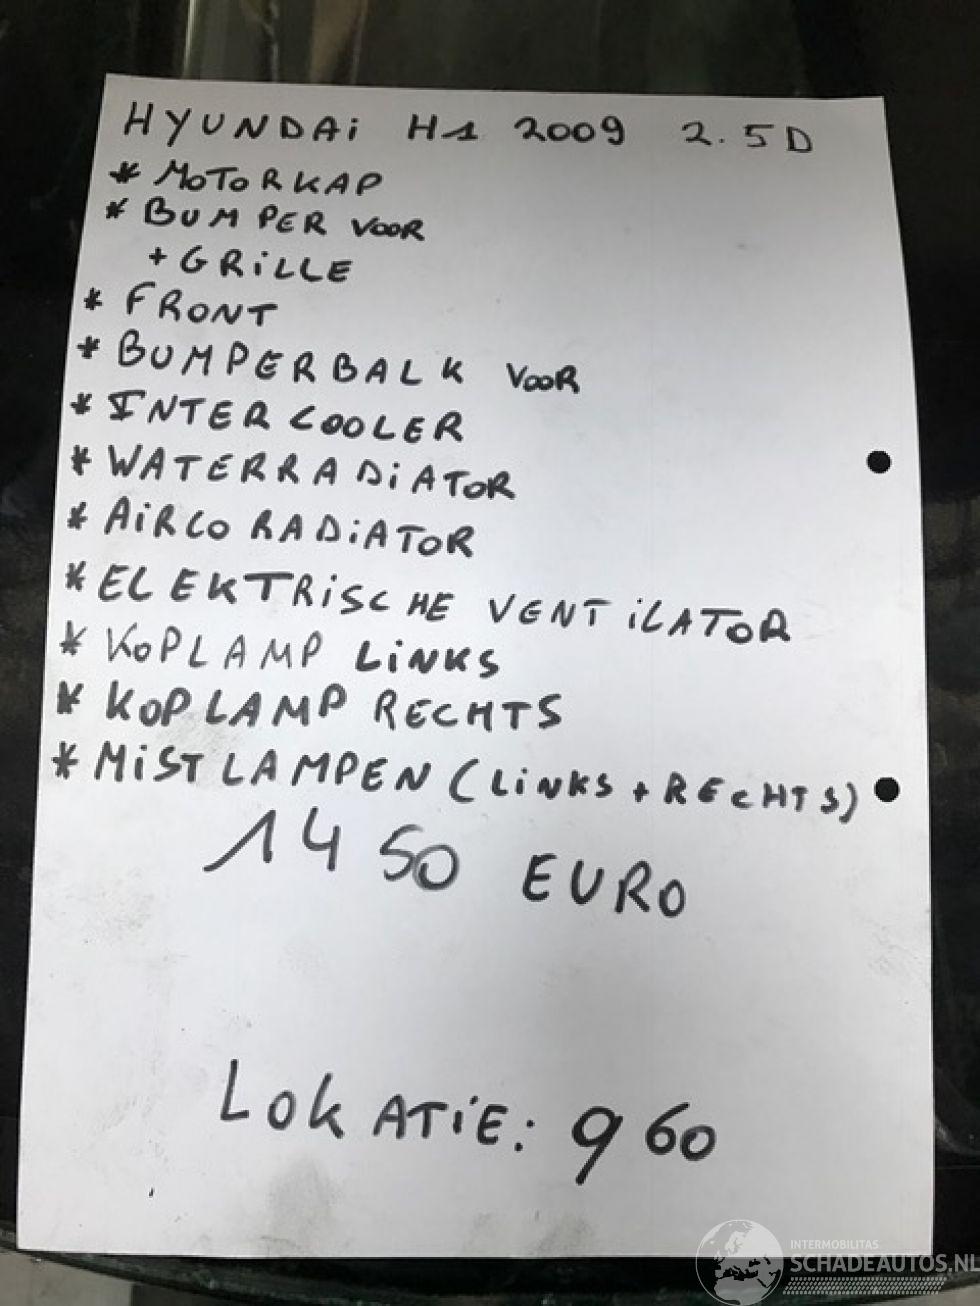 HYUNDAi H1 2009 2.5D
* MOTORKAP
* BUMPER VOOR
+ GRiLLE
* FRONT
* BUMPERBALK VOOR
* INTERCOOLER
* WATERRADiATOR
* AiRCO RADiATOR
* ELEKTRiSCHE VENTiLATOR
* KOPLAMP LiNKS
* KOPLAMP RECHTS
* MiSTLAMPEN (LiNKS + RECHTS)
1450 EURO
LOKATiE: 960
INTERMOBILITAS
SCHADEAUTOS.NL